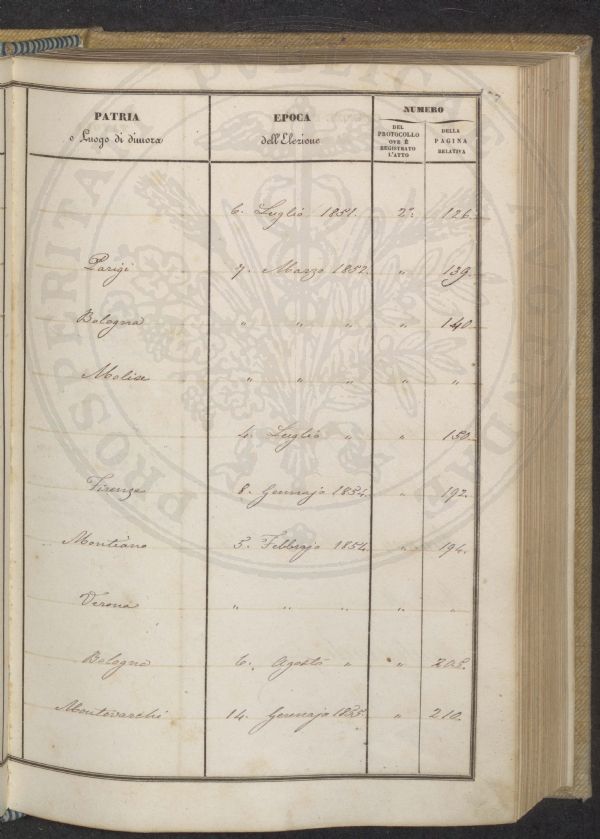 PROSPERITATI PUBLICAE AUGENDAE
PATRIA
o Luogo di dimora
EPOCA
dell'Elezione
NUMERO
DEL
PROTOCOLLO
OVE È
REGISTRATO
L'ATTO
DELLA
PAGINA
RELATIVA
6. Luglio 1851. 2°. 126.
Parigi 7. Marzo 1852. " 139.
Bologna " " " " 140.
Molise " " " " "
4. Luglio " " 150.
Firenze 8. Gennajo 1854. " 192.
Montiano 5. Febbrajo 1854. " 194.
Verona " " " " "
Bologna 6. Agosto " "
Montevarchi 14. Gennajo 1855. " 210.